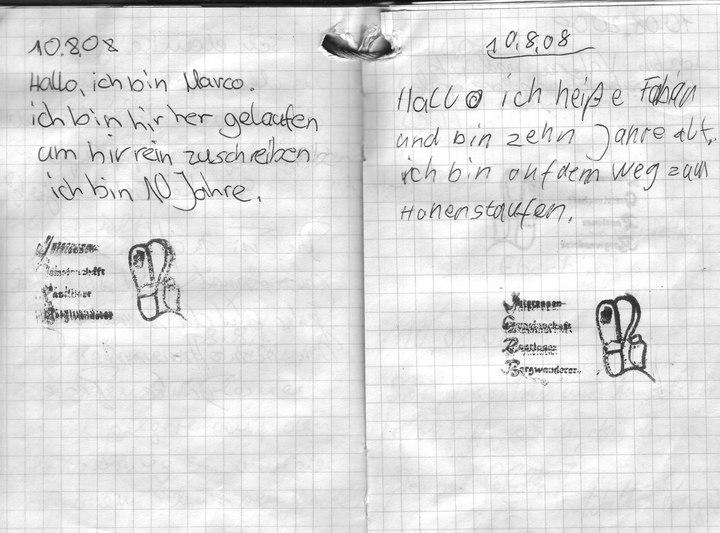 10.8.08
Hallo, ich bin Marco.
ich bin hir her gelaufen
um hir rein zuschreiben
ich bin 10 Jahre.
Bergwanderer
10.8.08
Hallo ich heiße Fabian
und bin zehn Jahre alt.
ich bin auf dem weg zum
Hohenstaufen.
Gemeinschaft
Bergwanderer